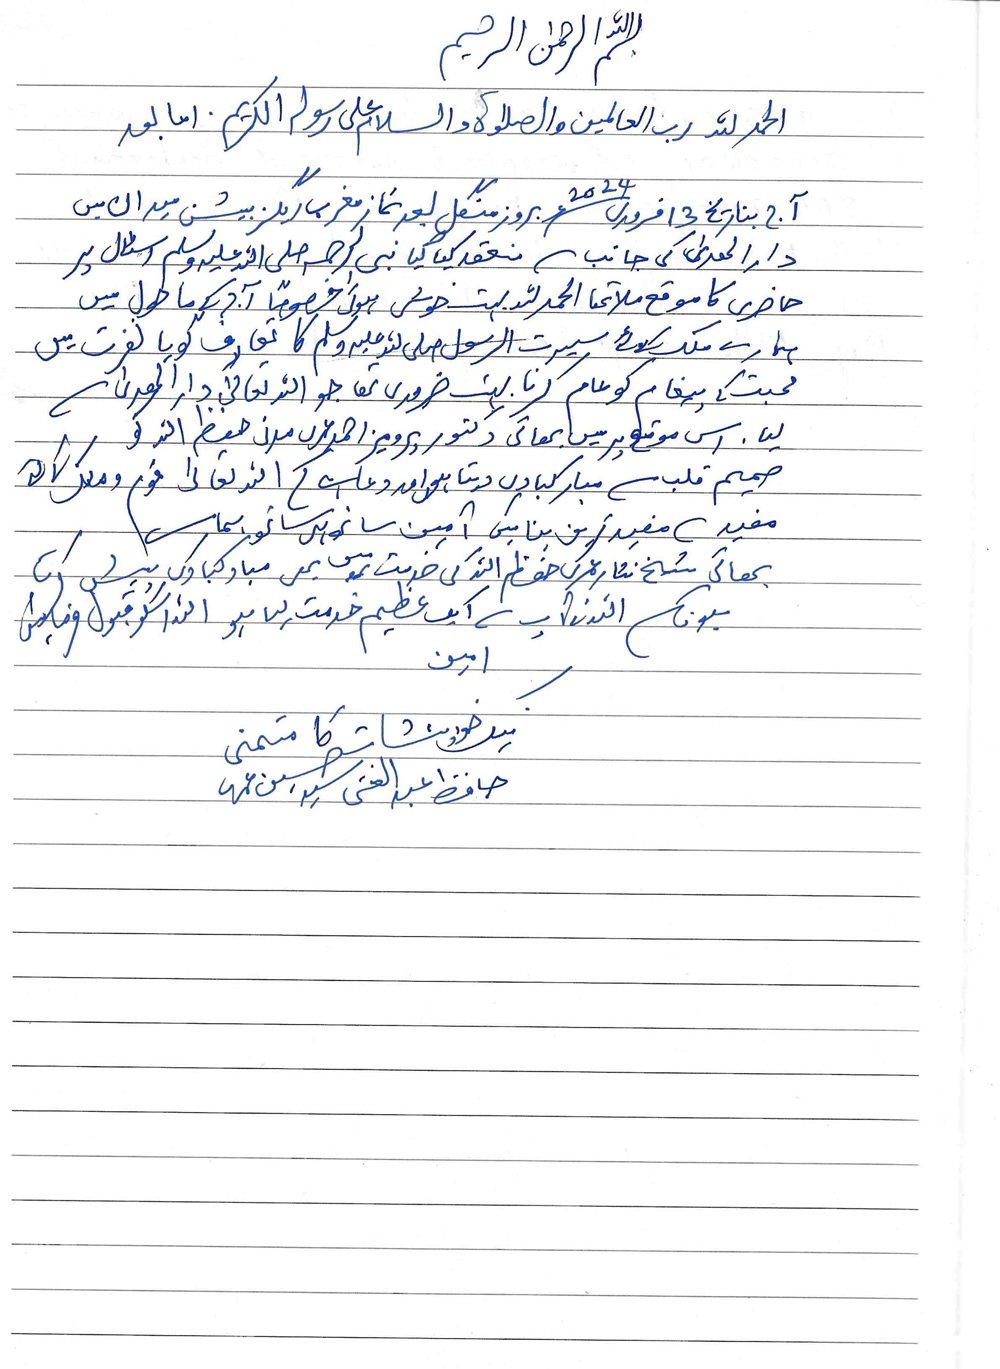 بسم اللہ الرحمن الرحیم
الحمد للہ رب العالمین والصلوۃ والسلام علی رسولہ الکریم . اما بعد
آج بتاریخ 13 فروری 2024ء بروز منگل بعد نماز مغرب میدان میں
دار الھدیٰ کی جانب سے منعقد کیا گیا نبی رحمت صلی اللہ علیہ وسلم اسٹال پر
حاضری کا موقع ملا تھا الحمد للہ بہت خوشی ہوئی خصوصًا آج کے ماحول میں
ہمارے ملک کیلئے سیرت الرسول صلی اللہ علیہ وسلم کا تعارف گویا نفرت میں
محبت کے پیغام کو عام کرنا بہت ضروری تھا جو اللہ تعالیٰ نے دار الھدیٰ سے
لیا . اس موقع پر میں بھائی دکتور پرویز احمد عمری مدنی حفظہ اللہ کو
صمیم قلب سے مبارکبادی دیتا ہوں اور دعا ہے کہ اللہ تعالیٰ قوم و ملت کیلئے
مفید سے مفید ترین بنائیں آمین ساتھ ہی ساتھ ہمارے
بھائی شیخ نثار عمری حفظہ اللہ کی خدمت میں بھی مبارکبادی پیش کرتا
ہوں کہ اللہ نے آپ سے ایک عظیم خدمت لیا ہے اللہ اسکو قبول فرمائیں
امین
نیک خواہشات کا متمنی
حافظ عبد الغنی سید حسین عمری